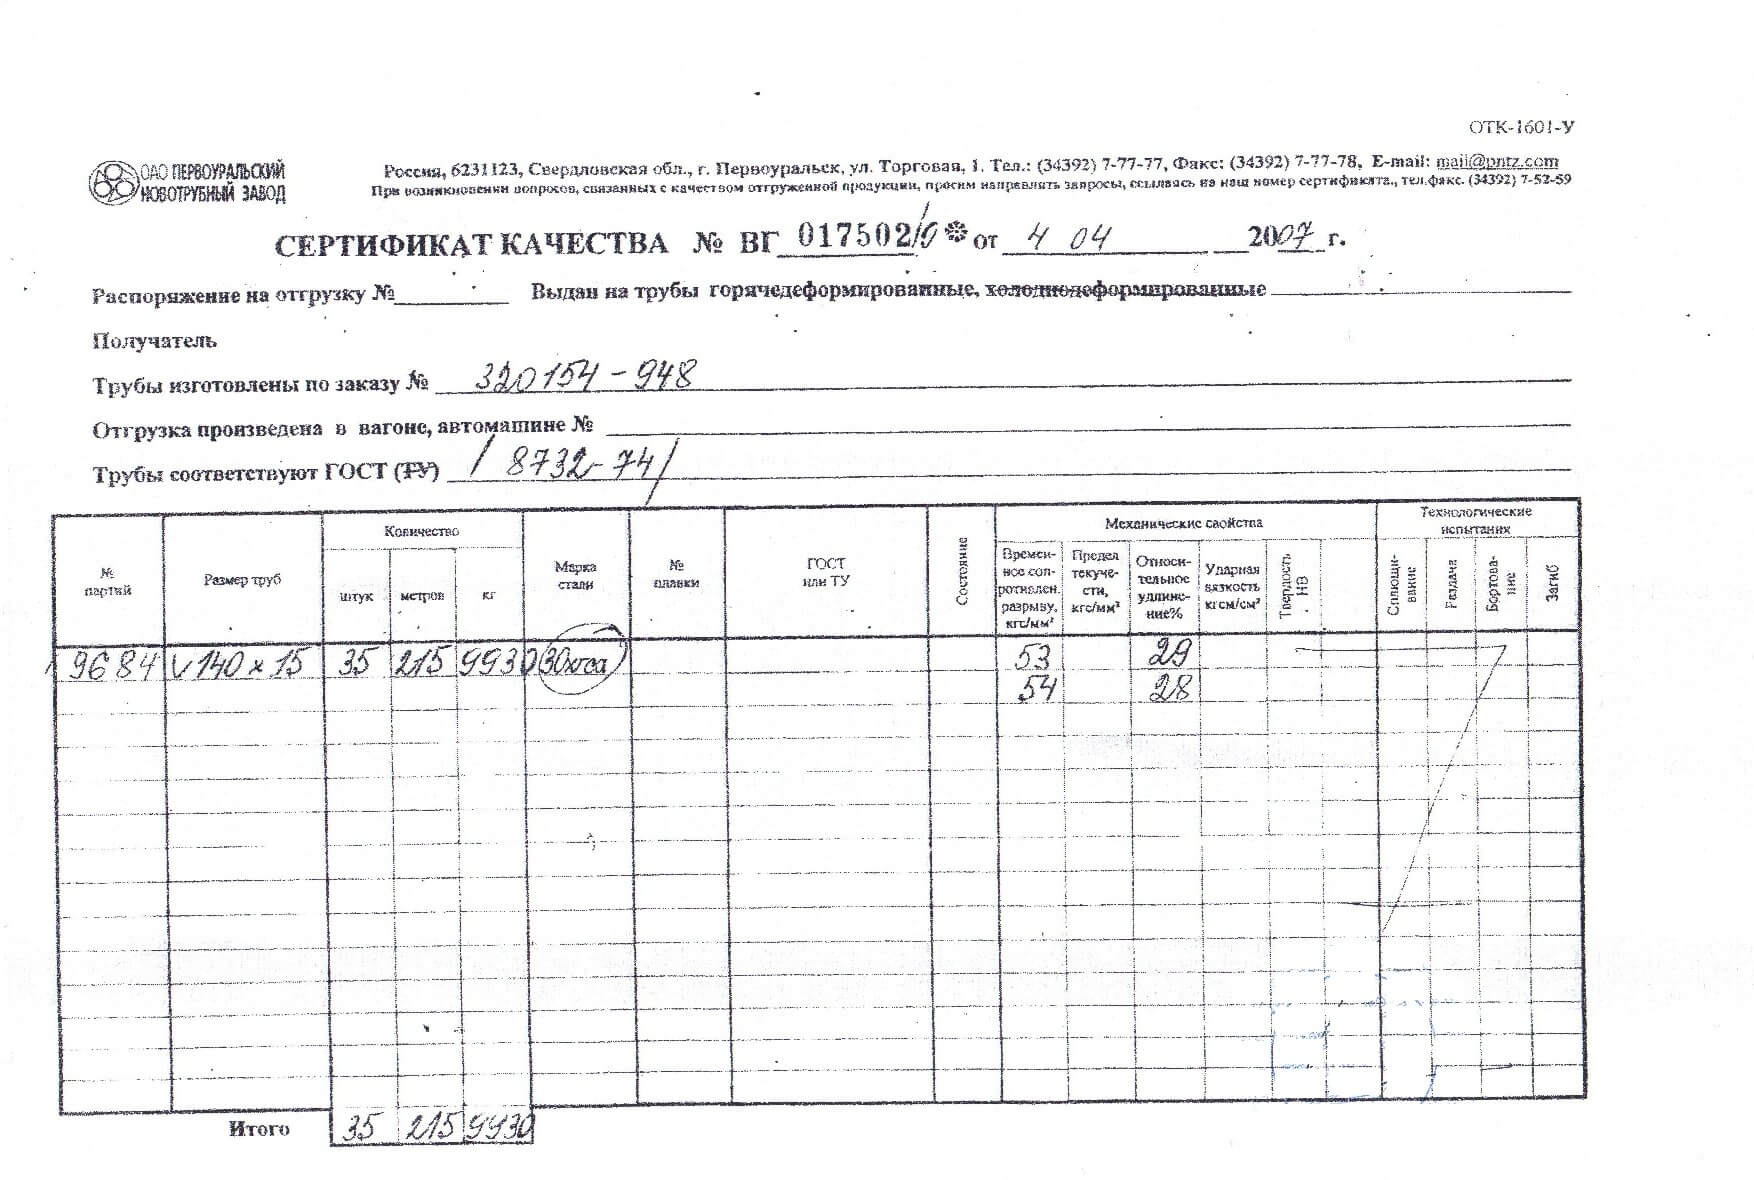 ОТК-1601-У
ОАО ПЕРВОУРАЛЬСКИЙ
НОВОТРУБНЫЙ ЗАВОД
Россия, 6231123, Свердловская обл., г. Первоуральск, ул. Торговая, 1. Тел.: (34392) 7-77-77, Факс: (34392) 7-77-78, E-mail: mail@pntz.com
При возникновении вопросов, связанных с качеством отгруженной продукции, просим направлять запросы, ссылаясь на наш номер сертификата., тел.факс. (34392) 7-52-59
СЕРТИФИКАТ КАЧЕСТВА № ВГ 017502/0 * от 4 04 2007 г.
Распоряжение на отгрузку № Выдан на трубы горячедеформированные, холоднодеформированные
Получатель
Трубы изготовлены по заказу № 320154-948
Отгрузка произведена в вагоне, автомашине №
Трубы соответствуют ГОСТ (ТУ) / 8732-74/
№ партий
Размер труб
Количество
штук
метров
кг
Марка стали
№ плавки
ГОСТ или ТУ
Состояние
Механические свойства
Времен-ное соп-ротивлен. разрыву, кгс/мм²
Предел текуче-сти, кгс/мм²
Относи-тельное удлине-ние%
Ударная вязкость кгсм/см²
Твердость НВ
Технологические испытания
Сплющи-вание
Раздача
Бортова-ние
Загиб
9684 140 x 15 35 215 9930 30хгса 53 29
54 28
Итого 35 215 9930